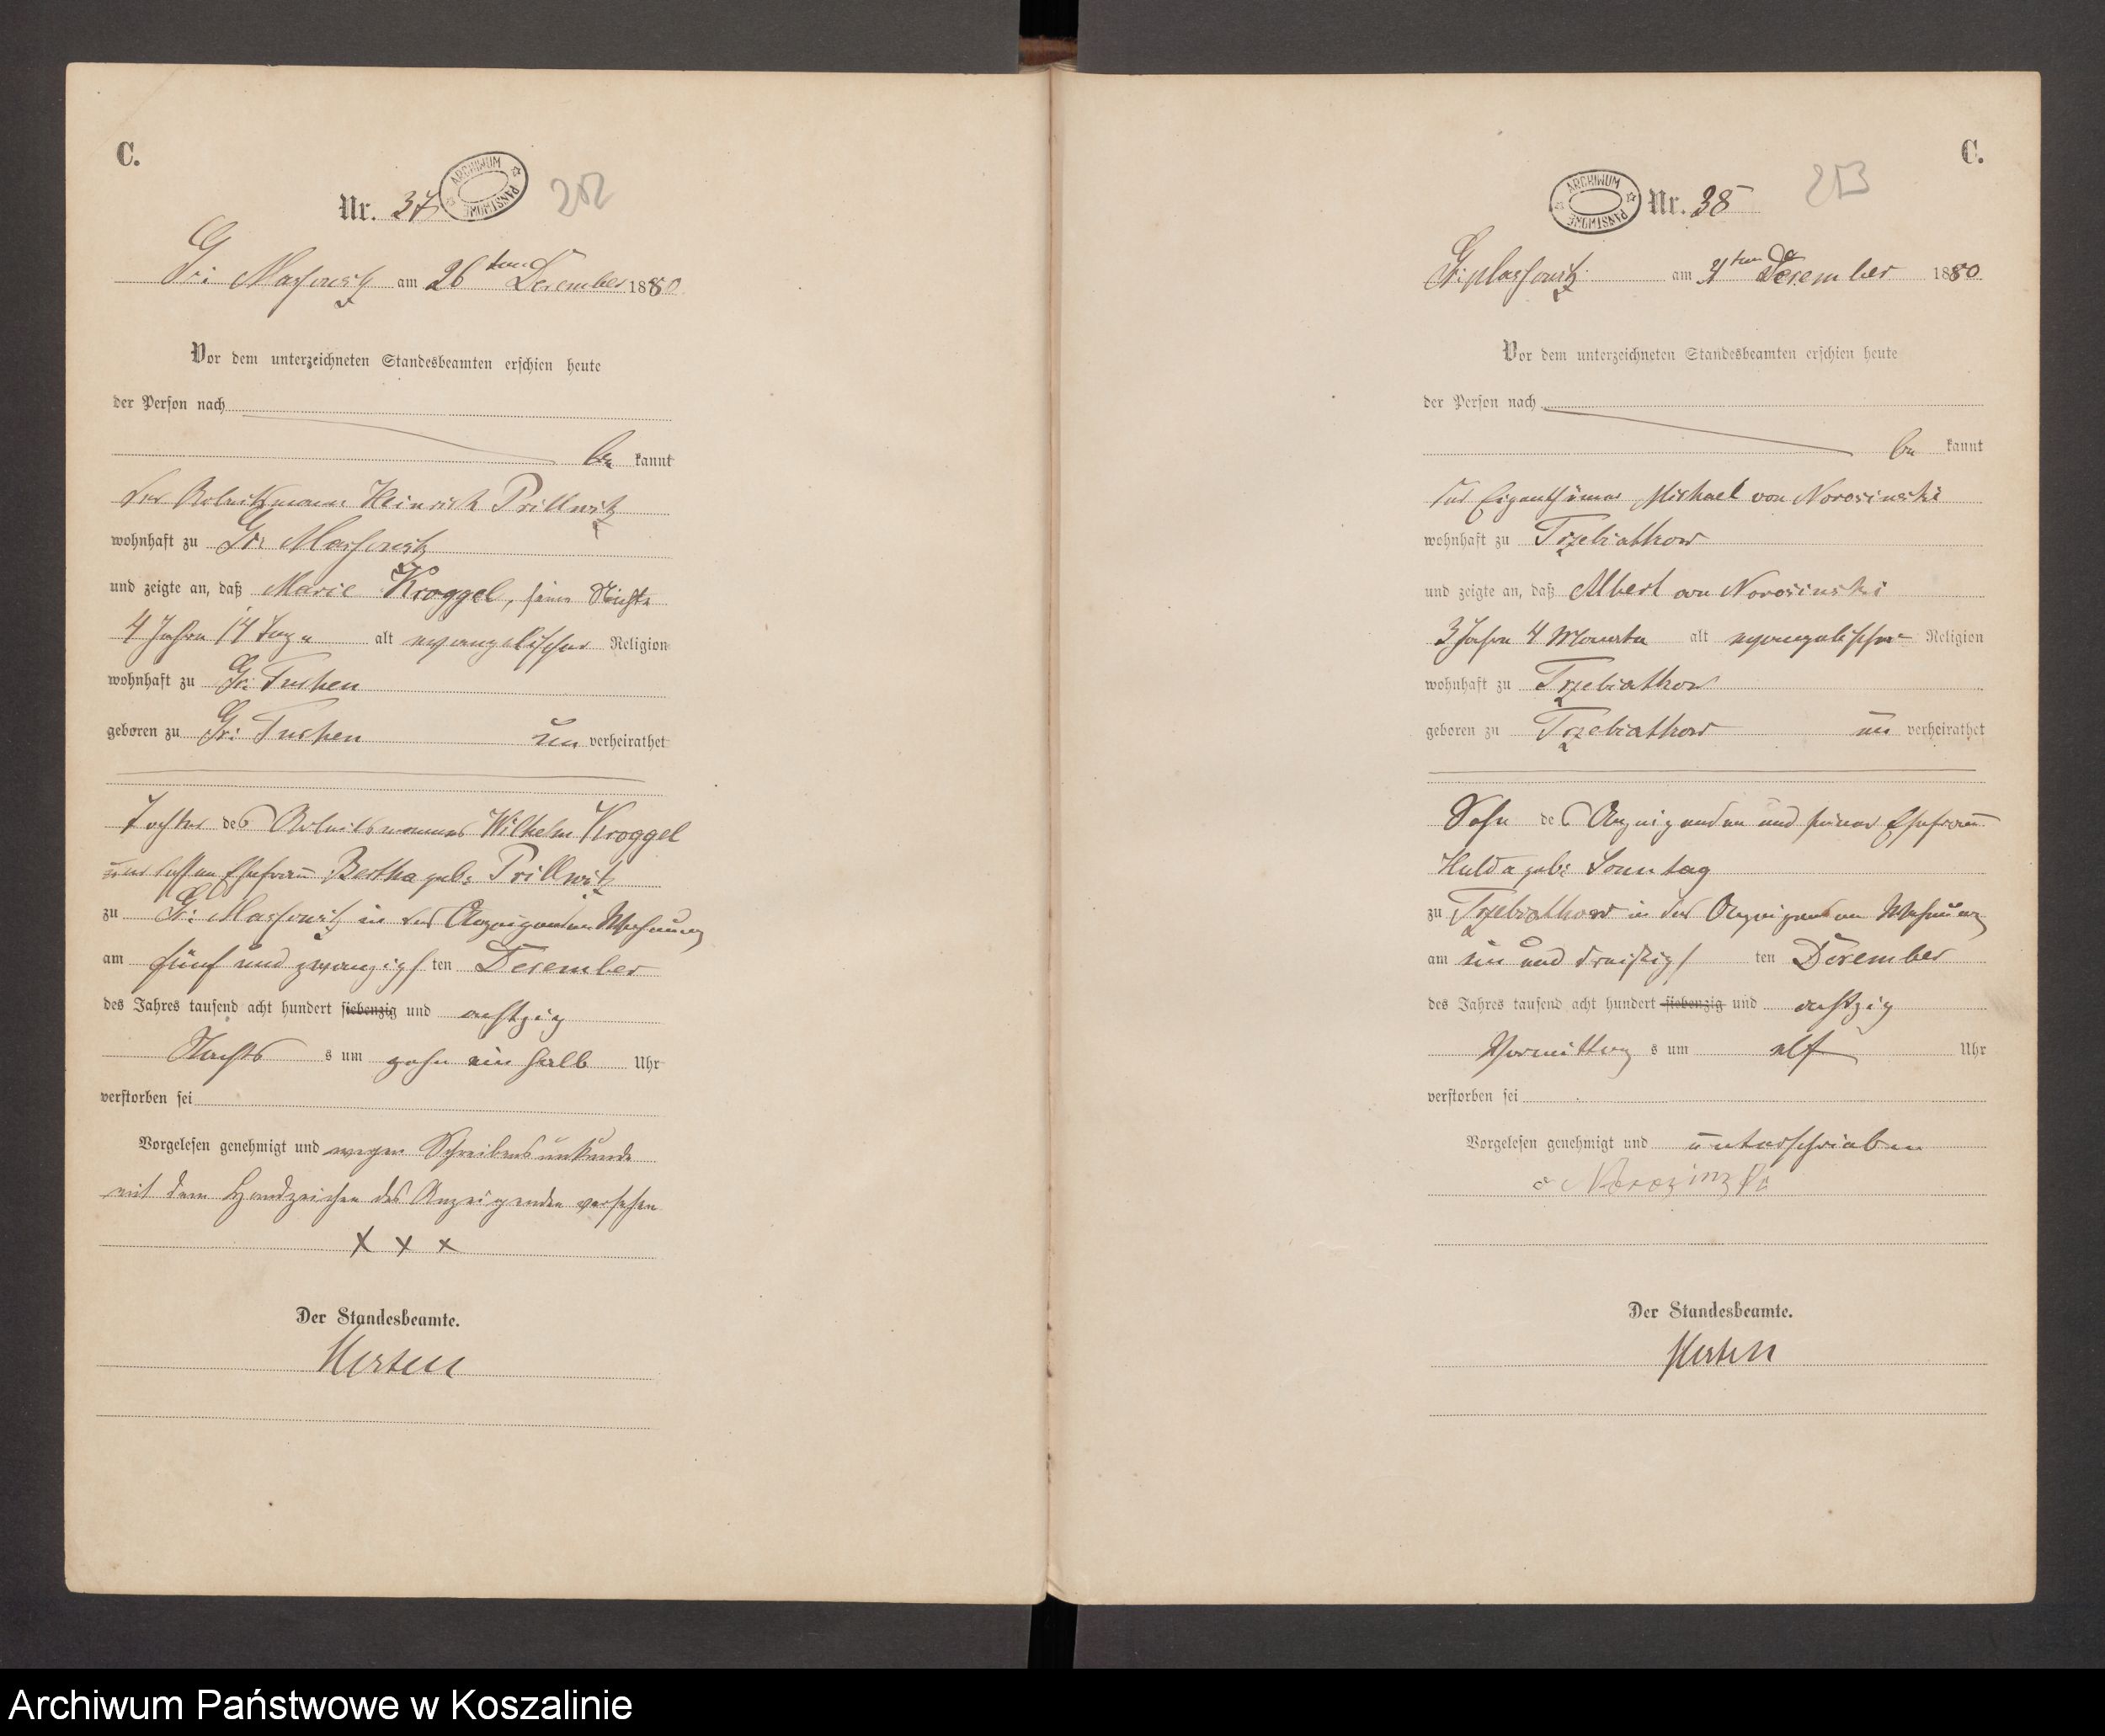 C.
Nr. 37
ARCHIWUM PAŃSTWOWE
202
Gr: Massowitz am 26ten December 1880
Vor dem unterzeichneten Standesbeamten erschien heute
der Person nach
be kannt
der Arbeitsmann Heinrich Prillwitz
wohnhaft zu Gr: Massowitz
und zeigte an, daß Marie Kroggel, seine Nichte
4 Jahre 14 Tage alt evangelischer Religion
wohnhaft zu Gr: Tuchen
geboren zu Gr: Tuchen un verheirathet
Tochter des Arbeitsmannes Wilhelm Kroggel
und dessen Ehefrau Bertha geb: Prillwitz
zu Gr: Massowitz in des Anzeigenden Wohnung
am fünf und zwanzigs ten December
des Jahres tausend acht hundert siebenzig und achtzig
Nachts s um zehn ein halb Uhr
verstorben sei
Vorgelesen genehmigt und wegen Schreibensunkunde
mit dem Handzeichen des Anzeigenden versehen
x x x
Der Standesbeamte.
C.
ARCHIWUM PAŃSTWOWE
Nr. 38
253
Gr: Massowitz am 31ten December 1880
Vor dem unterzeichneten Standesbeamten erschien heute
der Person nach
be kannt
der Eigenthümer Michael von Norosinski
wohnhaft zu Trzebiatkow
und zeigte an, daß Albert von Norosinski
3 Jahre 4 Monate alt evangelischer Religion
wohnhaft zu Trzebiatkow
geboren zu Trzebiatkow un verheirathet
Sohn des Anzeigenden und seiner Ehefrau
Hulda geb: Sonntag
zu Trzebiatkow in des Anzeigenden Wohnung
am ein und dreißigs ten December
des Jahres tausend acht hundert siebenzig und achtzig
Vormittag s um elf Uhr
verstorben sei
Vorgelesen genehmigt und unterschrieben
Der Standesbeamte.
Archiwum Państwowe w Koszalinie